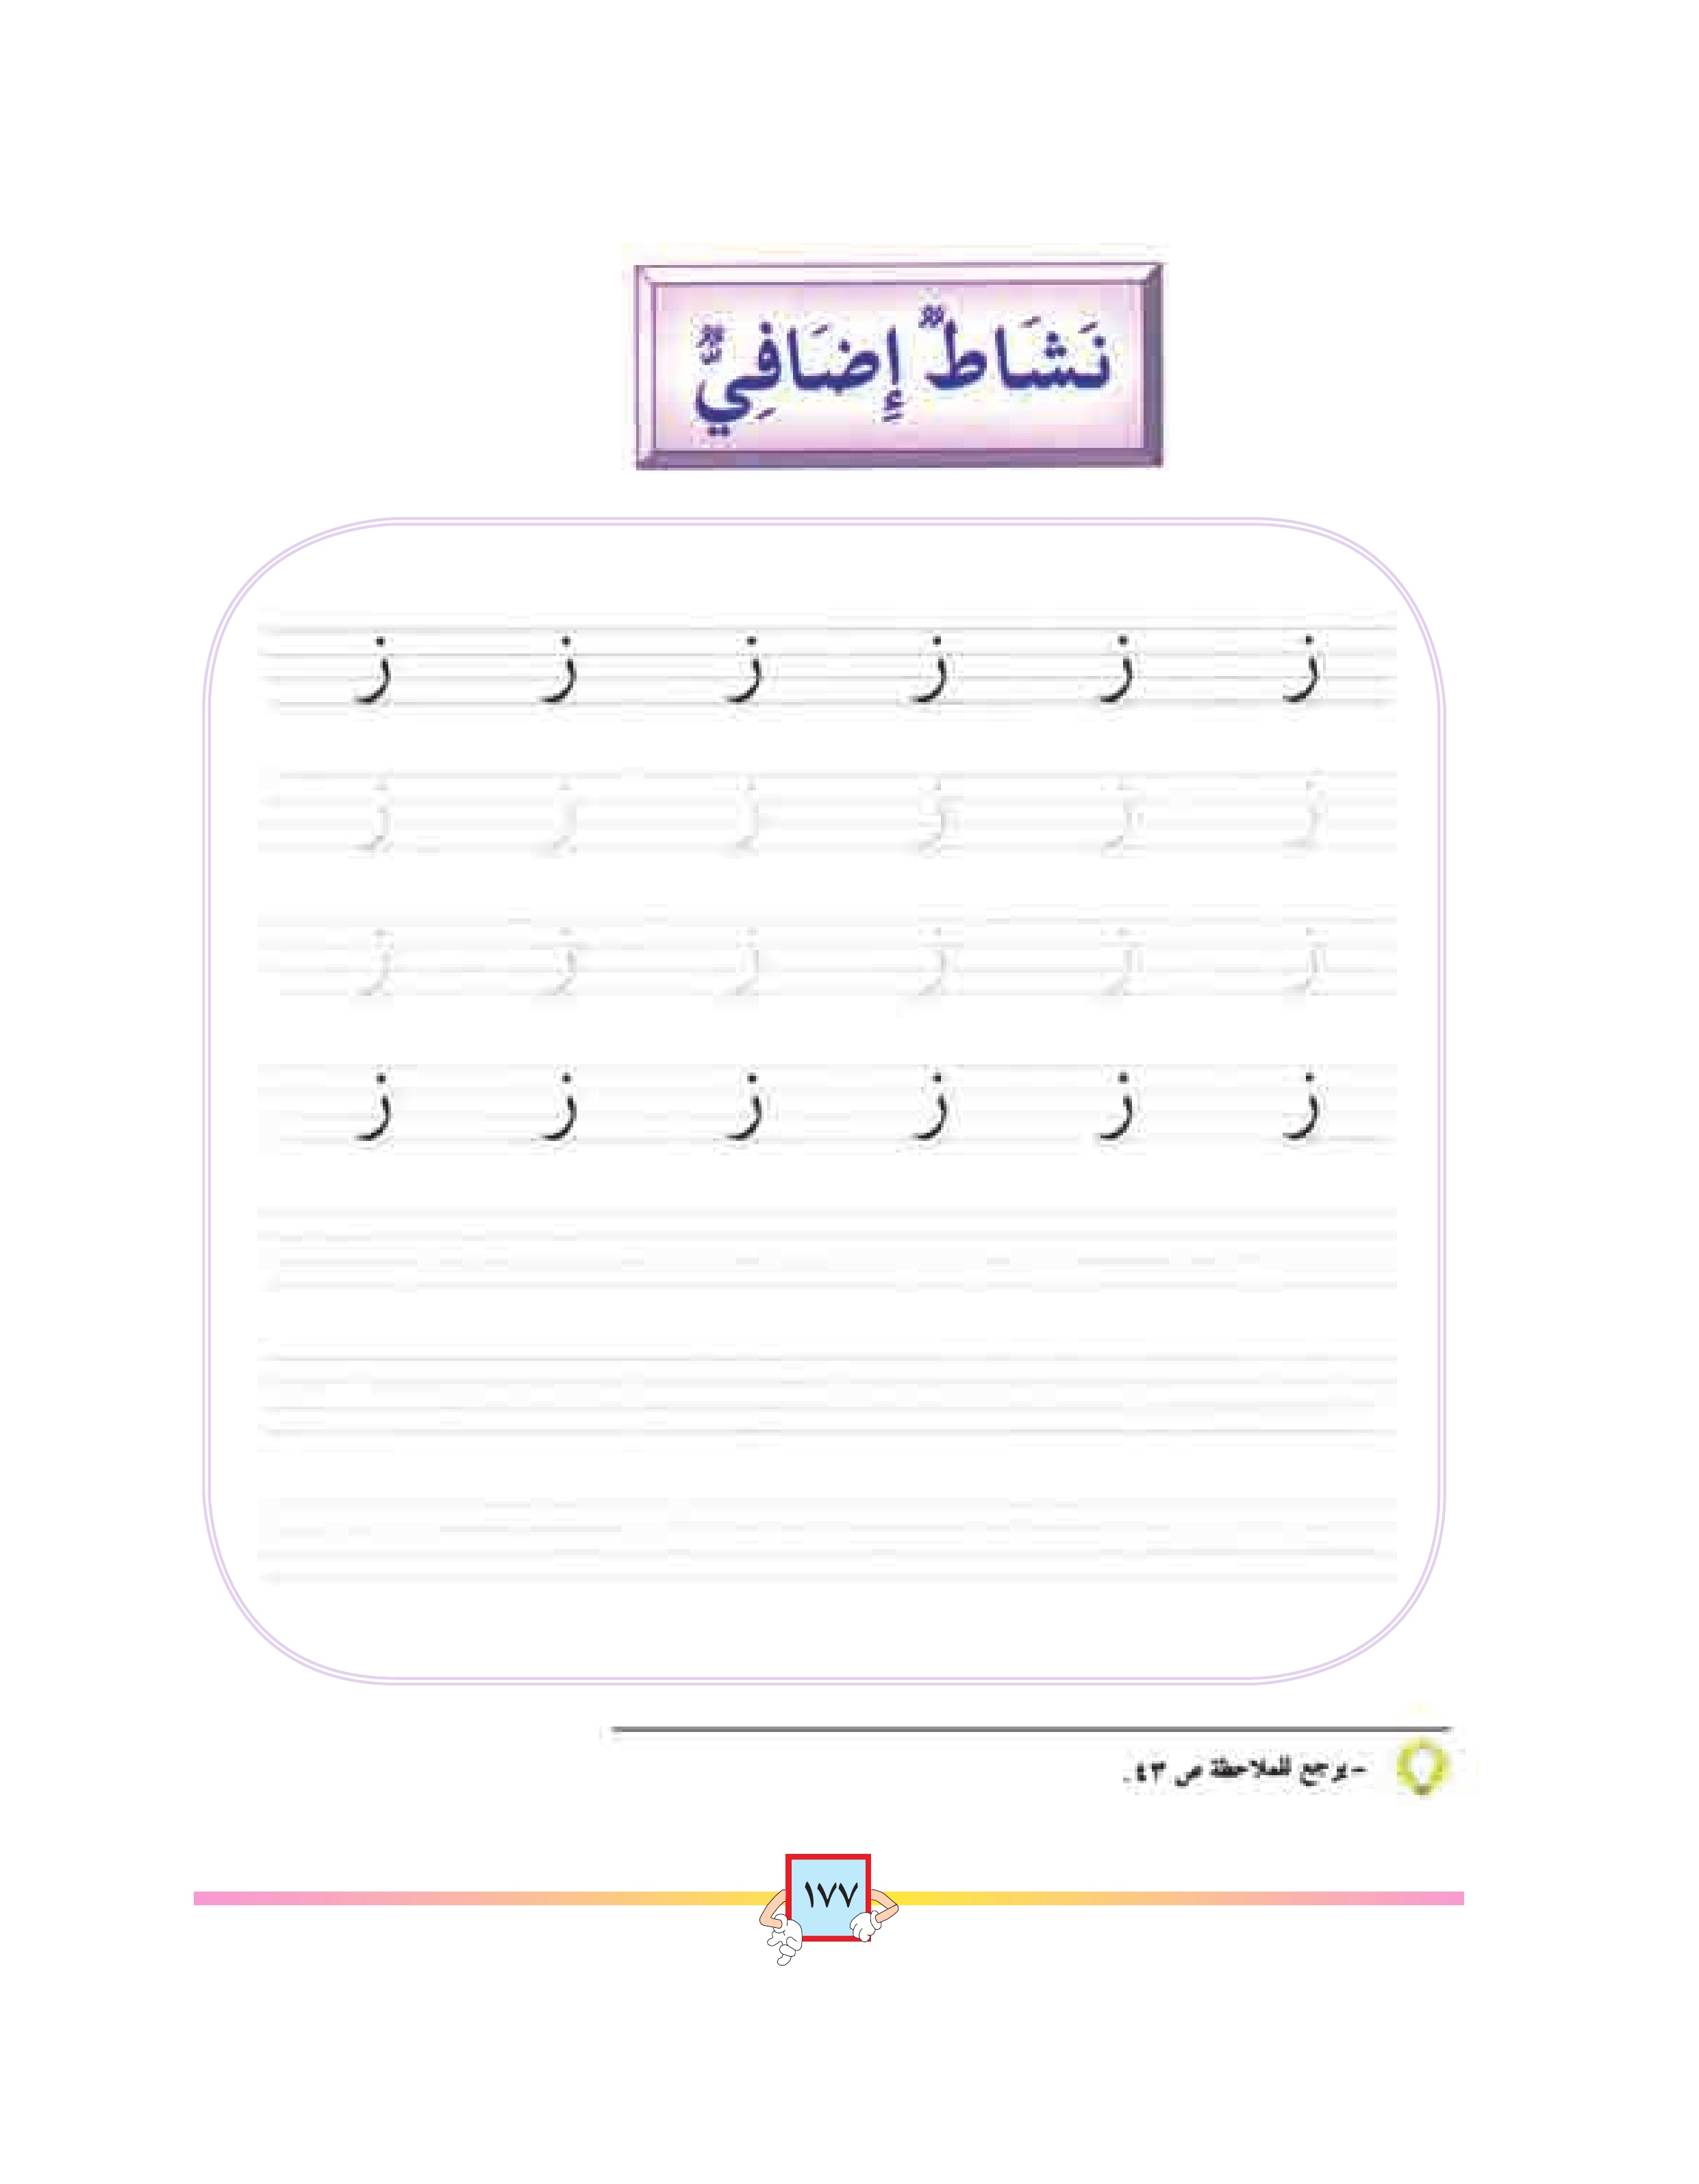 نَشَاطٌ إِضَافِيٌّ
ز ز ز ز ز ز
ز ز ز ز ز ز
ز ز ز ز ز ز
ز ز ز ز ز ز
- يرجع للملاحظة ص ٤٣.
١٧٧